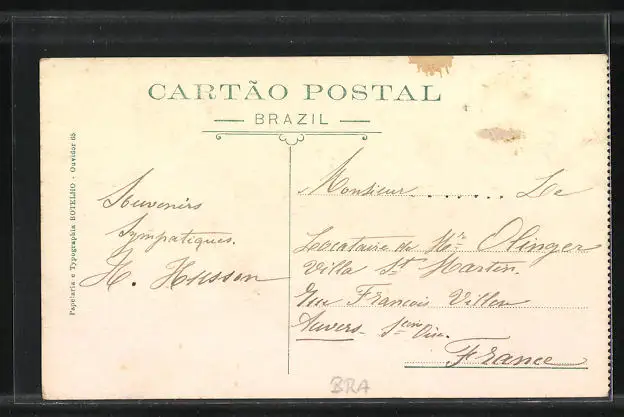 CARTÃO POSTAL
BRAZIL
Papelaria e Typographia BOTELHO - Ouvidor 65
Souvenirs
Sympatiques.
H. Husson
Monsieur ...... Le
Locataire de Mr Olinger
Villa St Martin.
Rue François Villon
Auvers - Seine Oise.
France
BRA